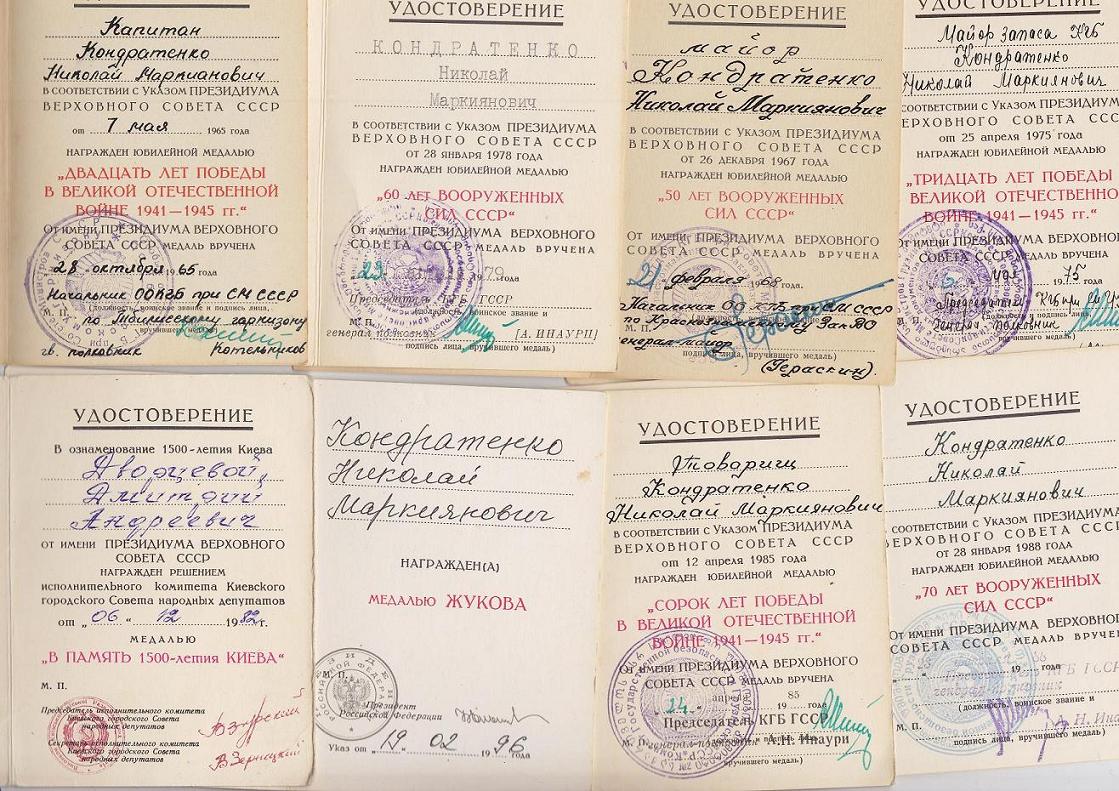 УДОСТОВЕРЕНИЕ
Капитан
Кондратенко
Николай Маркианович
в соответствии с Указом ПРЕЗИДИУМА
ВЕРХОВНОГО СОВЕТА СССР
от 7 мая 1965 года
НАГРАЖДЕН ЮБИЛЕЙНОЙ МЕДАЛЬЮ
„ДВАДЦАТЬ ЛЕТ ПОБЕДЫ
В ВЕЛИКОЙ ОТЕЧЕСТВЕННОЙ
ВОЙНЕ 1941—1945 гг.“
От имени ПРЕЗИДИУМА ВЕРХОВНОГО
СОВЕТА СССР МЕДАЛЬ ВРУЧЕНА
28 октября 1965 года
Начальник ООКГБ при СМ СССР
М. П.
по Тбилисскому гарнизону
гв. полковник Котельников
УДОСТОВЕРЕНИЕ
КОНДРАТЕНКО
Николай
Маркиянович
в соответствии с Указом ПРЕЗИДИУМА
ВЕРХОВНОГО СОВЕТА СССР
от 28 января 1978 года
НАГРАЖДЕН ЮБИЛЕЙНОЙ МЕДАЛЬЮ
„60 ЛЕТ ВООРУЖЕННЫХ
СИЛ СССР“
От имени ПРЕЗИДИУМА ВЕРХОВНОГО
СОВЕТА СССР МЕДАЛЬ ВРУЧЕНА
23 79 года
Председатель КГБ ГССР
(должность, воинское звание и
М. П.
генерал-полковник [А.ИНАУРИ]
подпись лица, вручившего медаль)
УДОСТОВЕРЕНИЕ
майор
Кондратенко
Николай Маркиянович
в соответствии с Указом ПРЕЗИДИУМА
ВЕРХОВНОГО СОВЕТА СССР
от 26 декабря 1967 года
НАГРАЖДЕН ЮБИЛЕЙНОЙ МЕДАЛЬЮ
„50 ЛЕТ ВООРУЖЕННЫХ
СИЛ СССР“
От имени ПРЕЗИДИУМА ВЕРХОВНОГО
СОВЕТА СССР МЕДАЛЬ ВРУЧЕНА
21 февраля 1968 года
по Краснознаменному ЗакВО
М. П.
генерал-майор
подпись лица, вручившего медаль)
(Гераскин).
УДОСТОВЕРЕНИЕ
Майор запаса КГБ
Кондратенко
Николай Маркиянович
в соответствии с Указом ПРЕЗИДИУМА
ВЕРХОВНОГО СОВЕТА СССР
от 25 апреля 1975 года
НАГРАЖДЕН ЮБИЛЕЙНОЙ МЕДАЛЬЮ
„ТРИДЦАТЬ ЛЕТ ПОБЕДЫ
ВЕЛИКОЙ ОТЕЧЕСТВЕННО
ВОЙНЕ 1941—1945 гг.“
От имени ПРЕЗИДИУМА ВЕРХОВНОГО
СОВЕТА СССР МЕДАЛЬ ВРУЧЕНА
мая 75
Председатель КГБ при
(должность, воинское звание и
М. П.
подпись лица, вручившего медаль)
УДОСТОВЕРЕНИЕ
В ознаменование 1500-летия Киева
Дмитрий
Андреевич
от имени ПРЕЗИДИУМА ВЕРХОВНОГО
СОВЕТА СССР
НАГРАЖДЕН РЕШЕНИЕМ
исполнительного комитета Киевского
городского Совета народных депутатов
от „06“ 12 1982 г.
МЕДАЛЬЮ
„В ПАМЯТЬ 1500-летия КИЕВА“
М. П.
Председатель исполнительного комитета
Киевского городского Совета
народных депутатов
Секретарь исполнительного комитета
Киевского городского Совета
народных депутатов
Кондратенко
Николай
Маркиянович
НАГРАЖДЕН(А)
МЕДАЛЬЮ ЖУКОВА
М. П.
Президент
Российской Федерации
Указ от „19“ 02 1996 года
УДОСТОВЕРЕНИЕ
Товарищ
Кондратенко
Николай Маркиянович
в соответствии с Указом ПРЕЗИДИУМА
ВЕРХОВНОГО СОВЕТА СССР
от 12 апреля 1985 года
НАГРАЖДЕН ЮБИЛЕЙНОЙ МЕДАЛЬЮ
„СОРОК ЛЕТ ПОБЕДЫ
В ВЕЛИКОЙ ОТЕЧЕСТВЕННОЙ
ВОЙНЕ 1941—1945 гг.“
От имени ПРЕЗИДИУМА ВЕРХОВНОГО
СОВЕТА СССР МЕДАЛЬ ВРУЧЕНА
24 апреля 1985 года
Председатель КГБ ГССР
М. П.
генерал-полковник А.Н. Инаури
вручившего медаль)
УДОСТОВЕРЕНИЕ
Кондратенко
Николай
Маркиянович
в соответствии с Указом ПРЕЗИДИУМА
ВЕРХОВНОГО СОВЕТА СССР
от 28 января 1988 года
НАГРАЖДЕН ЮБИЛЕЙНОЙ МЕДАЛЬЮ
„70 ЛЕТ ВООРУЖЕННЫХ
СИЛ СССР“
От имени ПРЕЗИДИУМА ВЕРХОВНОГО
СОВЕТА СССР МЕДАЛЬ ВРУЧЕНА
19 года
КГБ ГССР
(должность, воинское звание и
М. П.
подпись лица, вручившего медаль)